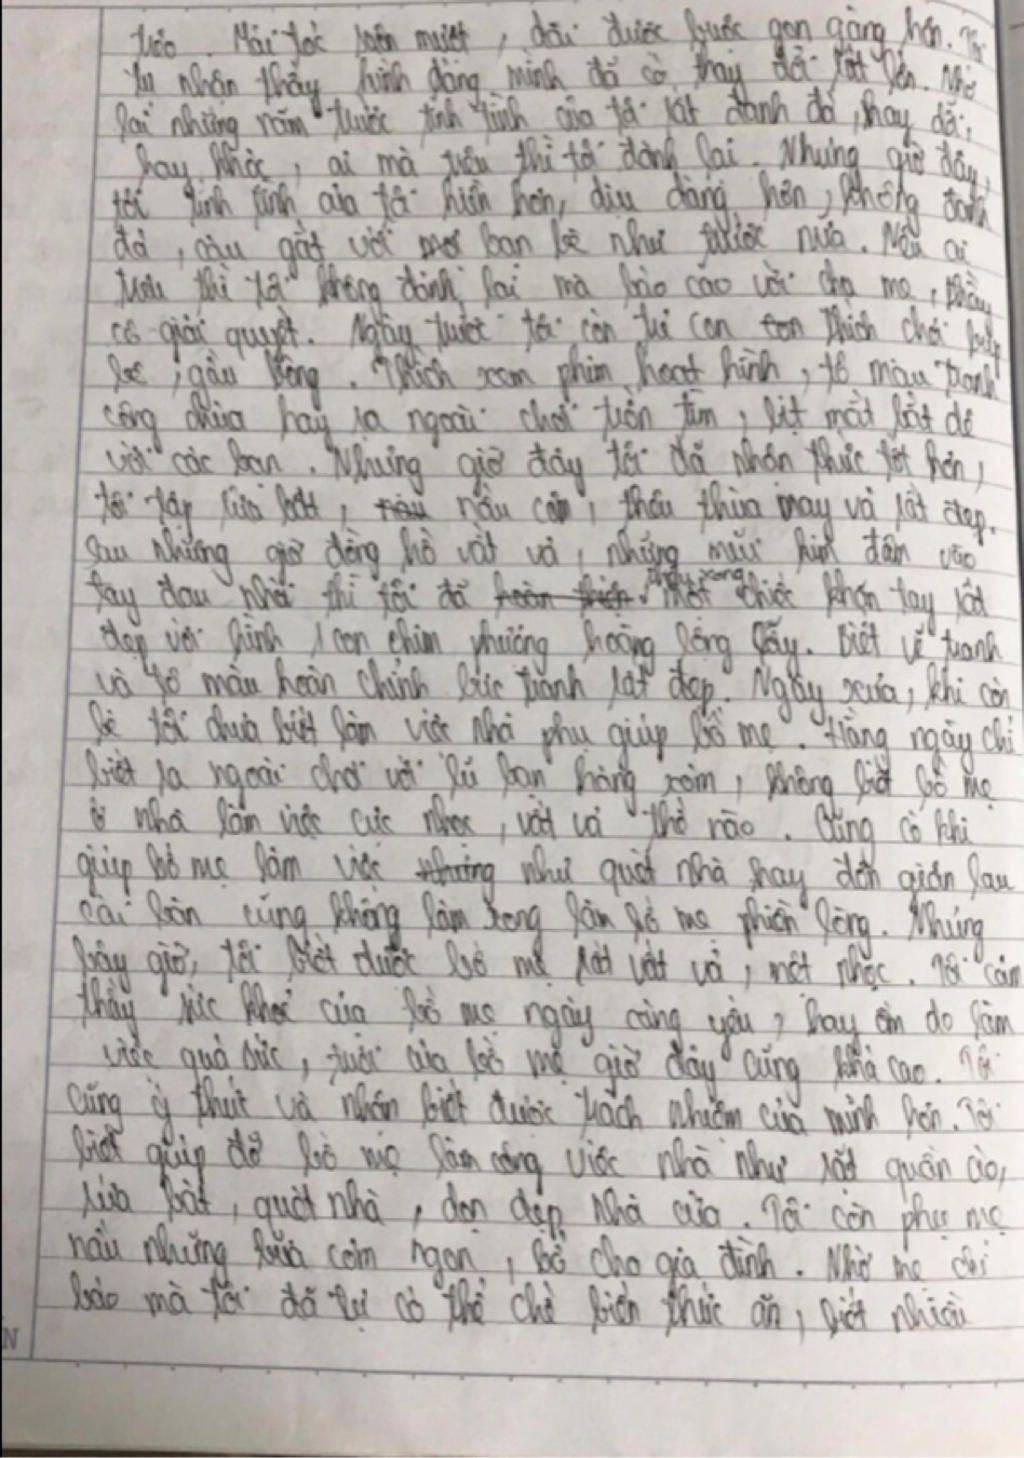 trước. Mái tóc luôn mượt, dài được buộc gọn gàng hơn. Tôi
tự nhận thấy hình dáng mình đã có thay đổi rất lớn. Nhớ
lại những năm trước tính tình của tôi rất đanh đá, hay dỗi,
hay khóc, ai mà trêu thì tôi đánh lại. Nhưng giờ đây,
tôi tính tình của tôi hiền hơn, dịu dàng hơn, không đanh
đá, càu gắt với mọi bạn bè như trước nữa. Nếu ai
trêu thì tôi không đánh lại mà báo cáo với cha mẹ, thầy
cô giải quyết. Ngày trước tôi còn trẻ con con thích chơi búp
bê, gấu bông. Thích xem phim hoạt hình, tô màu tranh
công chúa hay ra ngoài chơi trốn tìm, bịt mắt bắt dê
với các bạn. Nhưng giờ đây tôi đã nhận thức tốt hơn,
tôi tập rửa bát, nấu cơm, thêu thùa may vá rất đẹp.
Sau những giờ đồng hồ vất vả, những mũi kim đâm vào
tay đau nhói thì tôi đã hoàn thiện thêu xong một chiếc khăn tay rất
đẹp với hình 1 con chim phượng hoàng lộng lẫy. Biết vẽ tranh
và tô màu hoàn chỉnh bức tranh rất đẹp. Ngày xưa, khi còn
bé tôi chưa biết làm việc nhà phụ giúp bố mẹ. Hằng ngày chỉ
biết ra ngoài chơi với lũ bạn hàng xóm, không biết bố mẹ
ở nhà làm việc cực nhọc, vất vả thế nào. Cũng có khi
giúp bố mẹ làm việc nhưng như quét nhà hay đơn giản lau
cái bàn cũng không làm xong làm bố mẹ phiền lòng. Nhưng
bây giờ, tôi biết được bố mẹ rất vất vả, mệt nhọc. Tôi cảm
thấy sức khoẻ của bố mẹ ngày càng yếu, hay ốm do làm
việc quá sức, tuổi của bố mẹ giờ đây cũng khá cao. Tôi
cũng ý thức và nhận biết được trách nhiệm của mình hơn. Tôi
biết giúp đỡ bố mẹ làm công việc nhà như giặt quần áo,
rửa bát, quét nhà, dọn dẹp nhà cửa. Tôi còn phụ mẹ
nấu những bữa cơm ngon, bổ cho gia đình. Nhờ mẹ chỉ
bảo mà tôi đã tự có thể chế biến thức ăn, biết nhiều